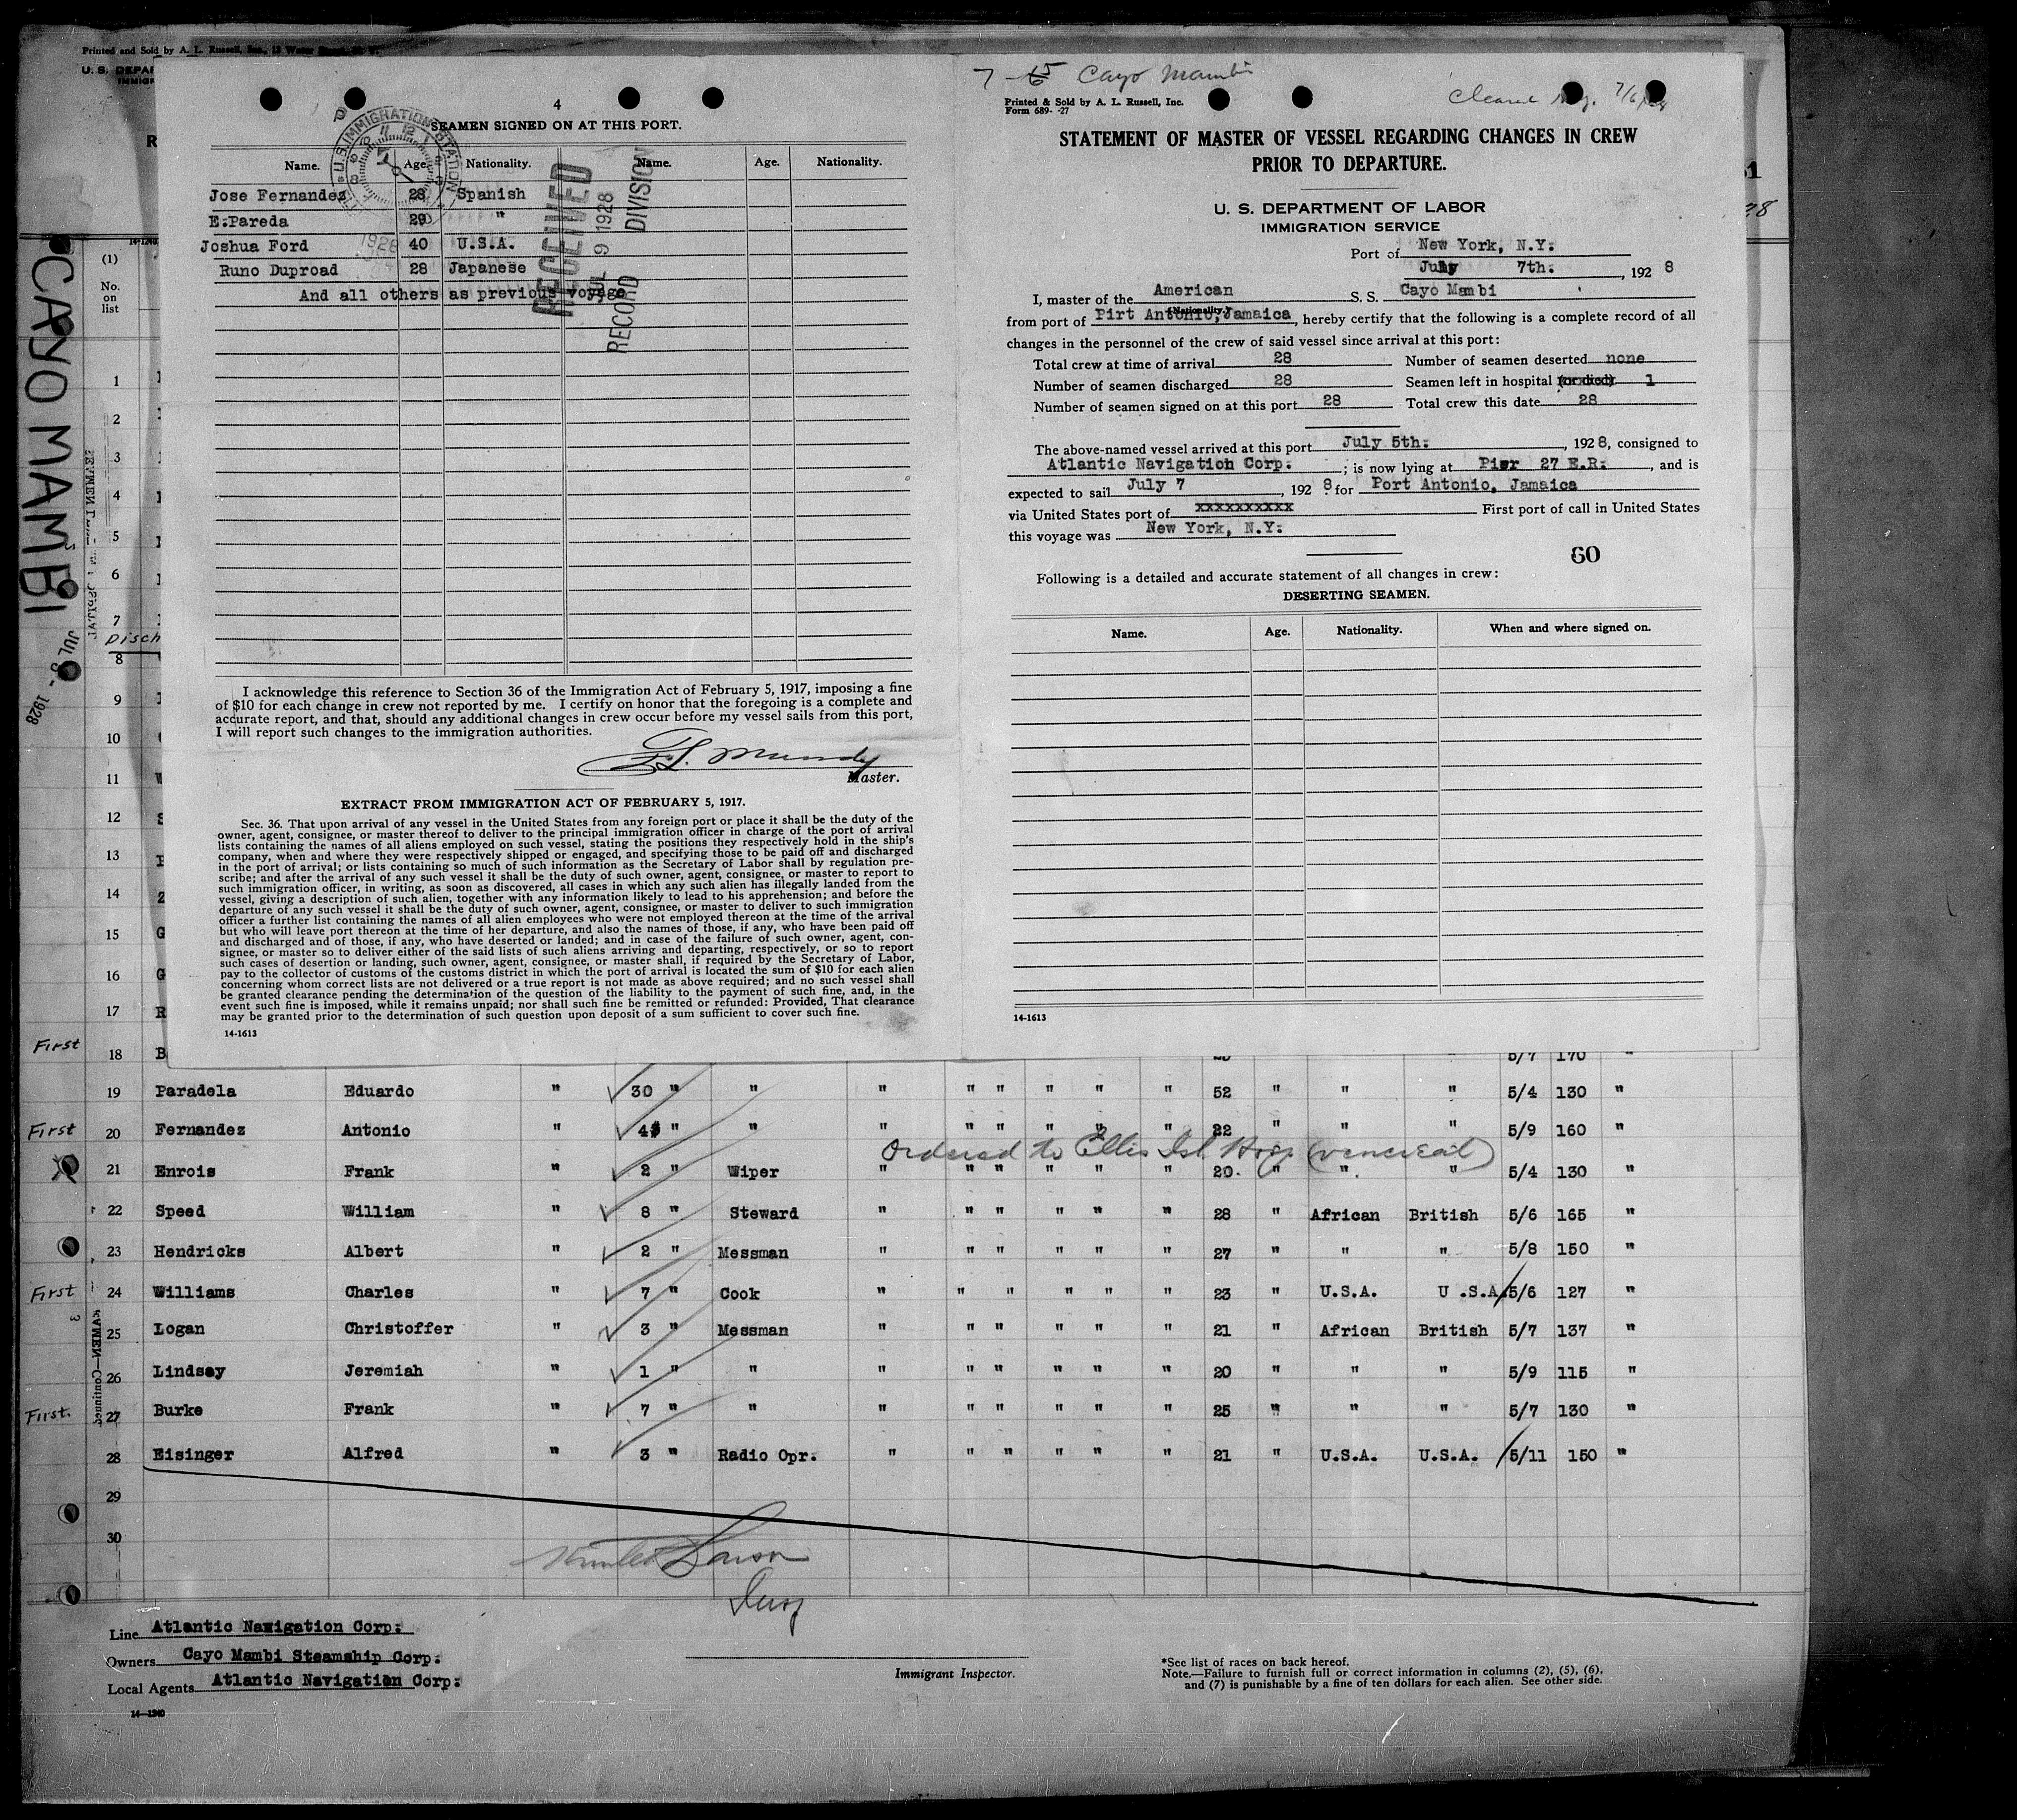 Printed and Sold by A. L. Russell, Inc., 13 Water
U. S. DEPA
IMMIG
CAYO MAMBI
JUL 8 - 1928
4
SEAMEN SIGNED ON AT THIS PORT.
U.S. IMMIGRATION STATION
Name. Age. Nationality. Name. Age. Nationality.
Jose Fernandez 28 Spanish
E.Pareda 29 "
Joshua Ford 40 U.S.A.
Runo Duproad 28 Japanese
And all others as previous voyage
RECEIVED
JUL 9 1928
RECORD DIVISION
I acknowledge this reference to Section 36 of the Immigration Act of February 5, 1917, imposing a fine
of $10 for each change in crew not reported by me. I certify on honor that the foregoing is a complete and
accurate report, and that, should any additional changes in crew occur before my vessel sails from this port,
I will report such changes to the immigration authorities.
Master.
EXTRACT FROM IMMIGRATION ACT OF FEBRUARY 5, 1917.
Sec. 36. That upon arrival of any vessel in the United States from any foreign port or place it shall be the duty of the
owner, agent, consignee, or master thereof to deliver to the principal immigration officer in charge of the port of arrival
lists containing the names of all aliens employed on such vessel, stating the positions they respectively hold in the ship's
company, when and where they were respectively shipped or engaged, and specifying those to be paid off and discharged
in the port of arrival; or lists containing so much of such information as the Secretary of Labor shall by regulation pre-
scribe; and after the arrival of any such vessel it shall be the duty of such owner, agent, consignee, or master to report to
such immigration officer, in writing, as soon as discovered, all cases in which any such alien has illegally landed from the
vessel, giving a description of such alien, together with any information likely to lead to his apprehension; and before the
departure of any such vessel it shall be the duty of such owner, agent, consignee, or master to deliver to such immigration
officer a further list containing the names of all alien employees who were not employed thereon at the time of the arrival
but who will leave port thereon at the time of her departure, and also the names of those, if any, who have been paid off
and discharged and of those, if any, who have deserted or landed; and in case of the failure of such owner, agent, con-
signee, or master so to deliver either of the said lists of such aliens arriving and departing, respectively, or so to report
such cases of desertion or landing, such owner, agent, consignee, or master shall, if required by the Secretary of Labor,
pay to the collector of customs of the customs district in which the port of arrival is located the sum of $10 for each alien
concerning whom correct lists are not delivered or a true report is not made as above required; and no such vessel shall
be granted clearance pending the determination of the question of the liability to the payment of such fine, and, in the
event such fine is imposed, while it remains unpaid; nor shall such fine be remitted or refunded: Provided, That clearance
may be granted prior to the determination of such question upon deposit of a sum sufficient to cover such fine.
14-1613
7 - 65 Cayo Mambi
Printed & Sold by A. L. Russell, Inc.
Form 689- -27
STATEMENT OF MASTER OF VESSEL REGARDING CHANGES IN CREW
PRIOR TO DEPARTURE.
U. S. DEPARTMENT OF LABOR
IMMIGRATION SERVICE
Port of New York, N.Y.
July 7th. , 1928
I, master of the American S. S. Cayo Mambi
(Nationality.)
from port of Pirt Antonio,Jamaica, hereby certify that the following is a complete record of all
changes in the personnel of the crew of said vessel since arrival at this port:
Total crew at time of arrival 28 Number of seamen deserted none
Number of seamen discharged 28 Seamen left in hospital (or died) 1
Number of seamen signed on at this port 28 Total crew this date 28
The above-named vessel arrived at this port July 5th. , 1928, consigned to
Atlantic Navigation Corp. ; is now lying at Pier 27 E.R. , and is
expected to sail July 7 , 1928 for Port Antonio, Jamaica
via United States port of xxxxxxxxxx First port of call in United States
this voyage was New York, N.Y.
60
Following is a detailed and accurate statement of all changes in crew:
DESERTING SEAMEN.
Name. Age. Nationality. When and where signed on.
14-1613
(1)
No.
on
list
1
2
3
4
5
6
7
Disch
8
9
10
11
12
13
14
15
16
17
First 18 B 5/7 170 "
19 Paradela Eduardo " 30 " " " " " " " " 52 " " " 5/4 130 "
First 20 Fernandez Antonio " 4 " " " " " " " " 22 " " " 5/9 160 "
Ordered to Ellis Isl Hosp (venereal)
21 Enrois Frank " 2 " Wiper " " " " " " 20 " " " 5/4 130 "
22 Speed William " 8 " Steward " " " " " " 28 " African British 5/6 165 "
23 Hendricks Albert " 2 " Messman " " " " " " 27 " " " 5/8 150 "
First 24 Williams Charles " 7 " Cook " " " " " " 23 " U.S.A. U.S.A. 5/6 127 "
25 Logan Christoffer " 3 " Messman " " " " " " 21 " African British 5/7 137 "
26 Lindsay Jeremiah " 1 " " " " " " " " 20 " " " 5/9 115 "
First. 27 Burke Frank " 7 " " " " " " " " 25 " " " 5/7 130 "
28 Eisinger Alfred " 3 " Radio Opr. " " " " " " 21 " U.S.A. U.S.A. 5/11 150 "
29
30
Line Atlantic Navigation Corp.
Owners Cayo Mambi Steamship Corp.
Local Agents Atlantic Navigation Corp.
14-1240
Immigrant Inspector.
*See list of races on back hereof.
Note.—Failure to furnish full or correct information in columns (2), (5), (6),
and (7) is punishable by a fine of ten dollars for each alien. See other side.